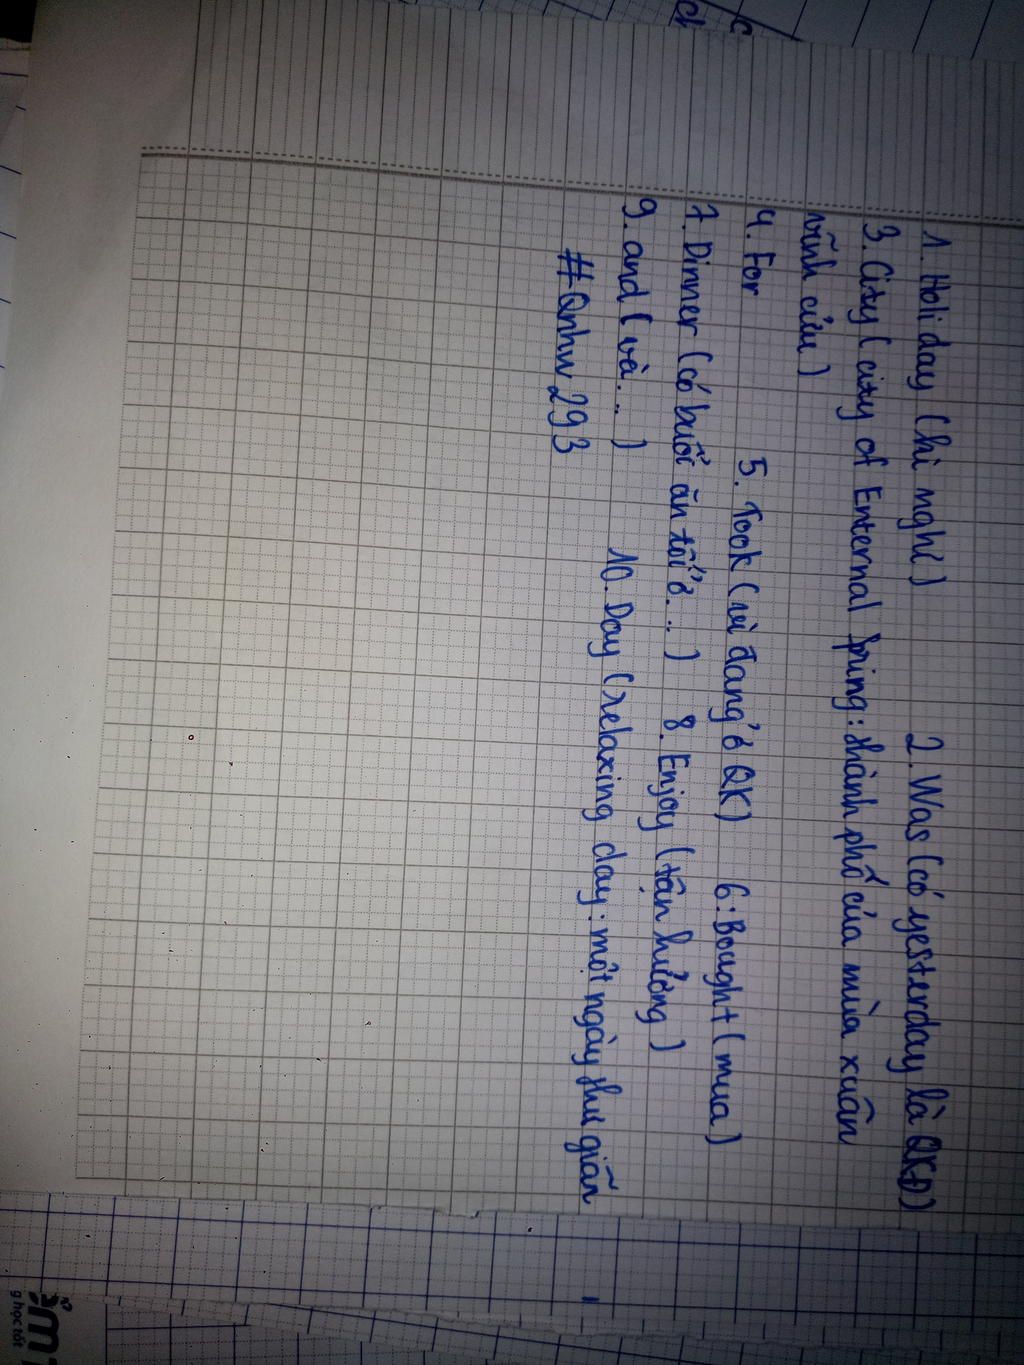 1. Holiday (kì nghỉ) 2. Was (có yesterday là QKĐ)
3. City (city of Enternal Spring: thành phố của mùa xuân
vĩnh cửu)
4. For 5. Took (vì đang ở QK) 6: Bought (mua)
7. Dinner (có buổi ăn tối ở...) 8. Enjoy (tận hưởng)
9. and (và...) 10. Day (relaxing day: một ngày thư giãn
#Qnhw293
g học tốt